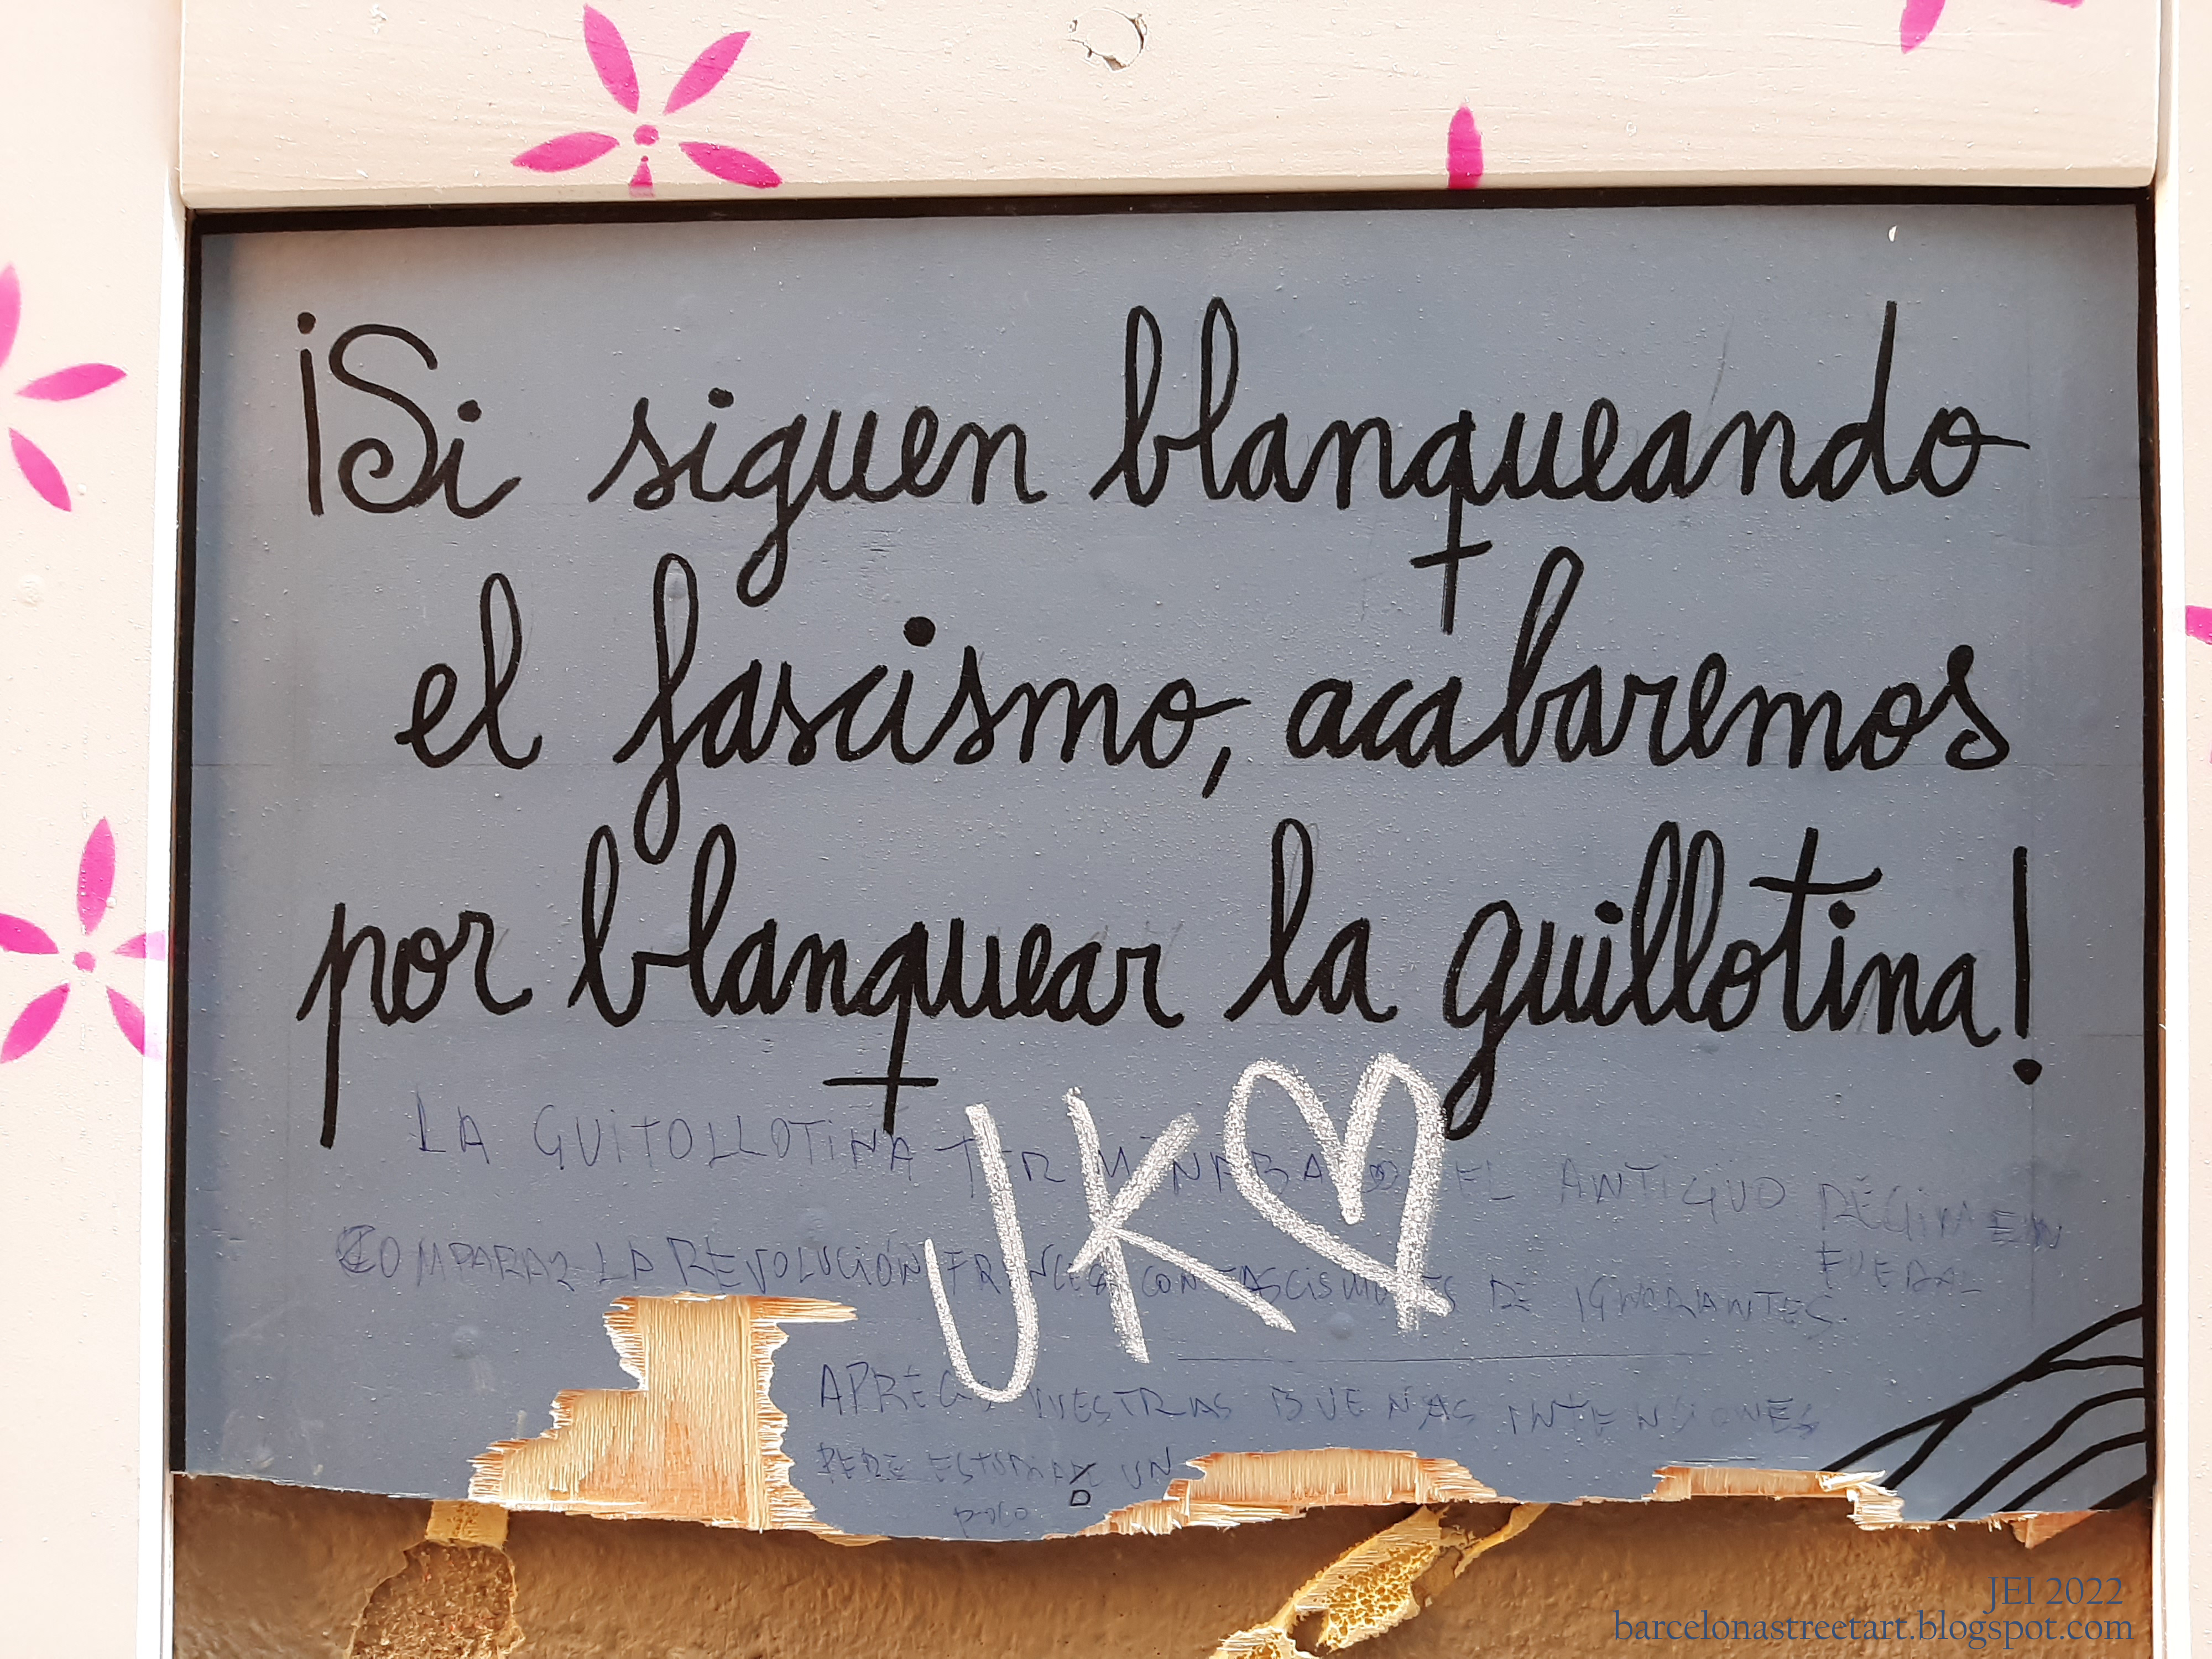 ¡Si siguen blanqueando
el fascismo, acabaremos
por blanquear la guillotina!
JK
LA GUITOLLOTINA EL ANTIGUO RÉGIMEN
FUEDAL
COMPARAR LA REVOLUCIÓN FRANCESA CON FASCISMO ES DE IGNORANTES
APRECIO VUESTRAS BUENAS INTENCIONES
PERO ESTUDIAD UN
poco
JEI 2022
barcelonastreetart.blogspot.com